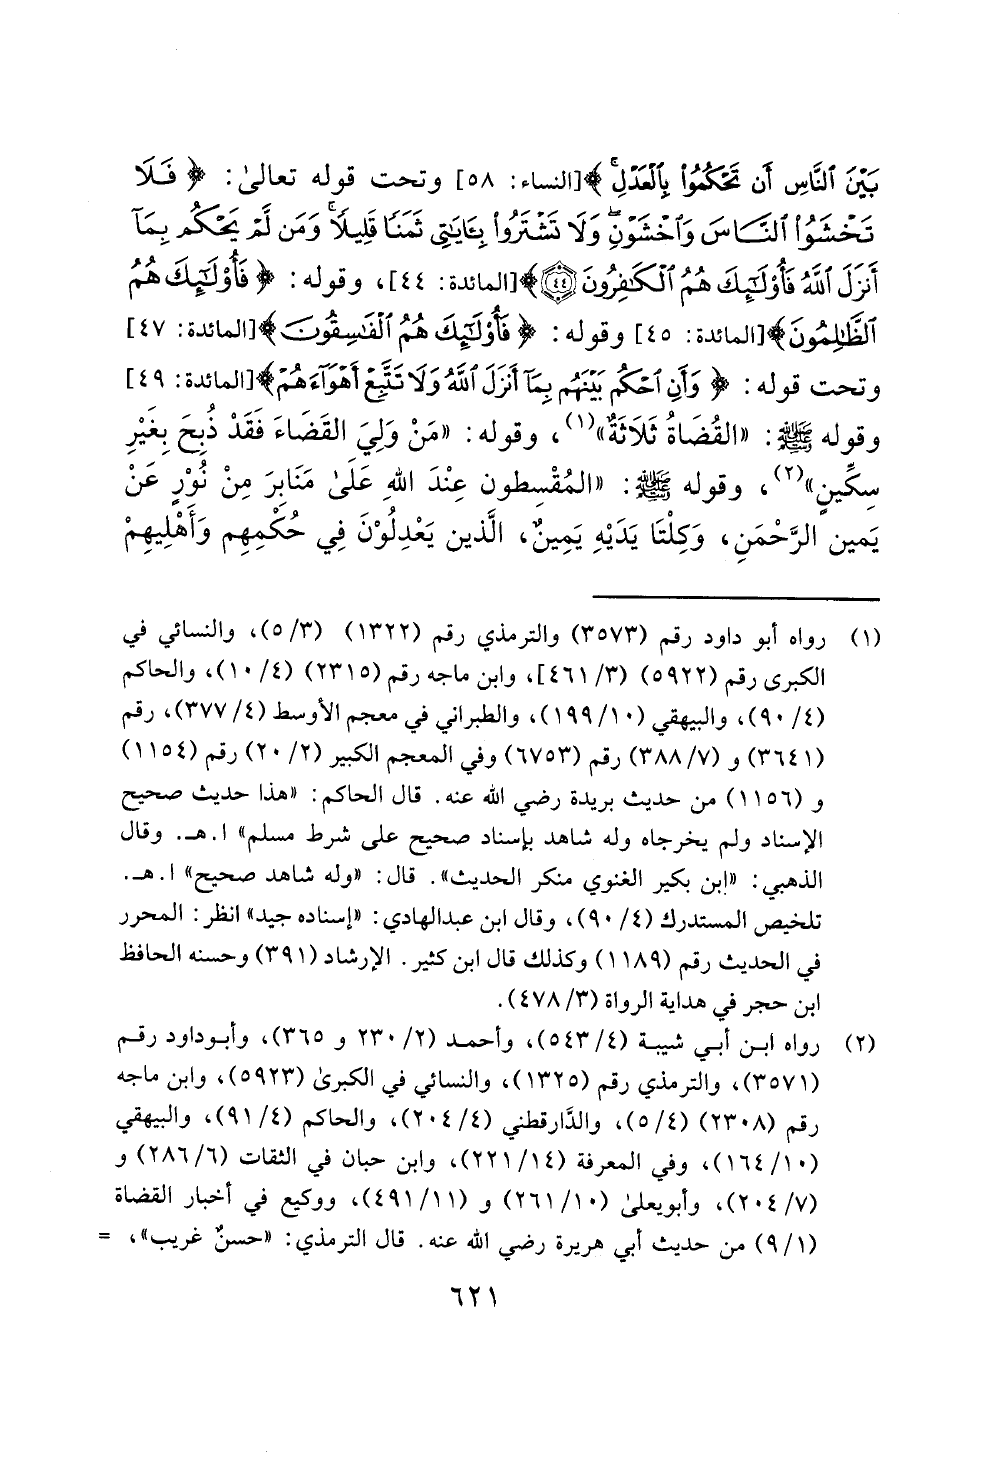 بَيْنَ ٱلنَّاسِ أَن تَحْكُمُوا۟ بِٱلْعَدْلِ ۚ ﴾[النساء: ٥٨] وتحت قوله تعالىٰ: ﴿ فَلَا
تَخْشَوُا۟ ٱلنَّاسَ وَٱخْشَوْنِ ۖ وَلَا تَشْتَرُوا۟ بِـَٔايَـٰتِى ثَمَنًا قَلِيلًا ۚ وَمَن لَّمْ يَحْكُم بِمَآ
أَنزَلَ ٱللَّهُ فَأُو۟لَـٰٓئِكَ هُمُ ٱلْكَـٰفِرُونَ ٤٤﴾[المائدة: ٤٤]، وقوله: ﴿ فَأُو۟لَـٰٓئِكَ هُمُ
ٱلظَّـٰلِمُونَ﴾[المائدة: ٤٥] وقوله: ﴿ فَأُو۟لَـٰٓئِكَ هُمُ ٱلْفَـٰسِقُونَ﴾[المائدة: ٤٧]
وتحت قوله: ﴿ وَأَنِ ٱحْكُم بَيْنَهُم بِمَآ أَنزَلَ ٱللَّهُ وَلَا تَتَّبِعْ أَهْوَآءَهُمْ﴾[المائدة: ٤٩]
وقوله ﷺ: «القُضَاةُ ثَلَاثَةٌ»(١)، وقوله: «مَنْ وَلِيَ القَضَاءَ فَقَدْ ذُبِحَ بِغَيْرِ
سِكِّينٍ»(٢)، وقوله ﷺ: «المُقْسِطون عِنْدَ اللهِ عَلَىٰ مَنَابِرَ مِنْ نُوْرٍ عَنْ
يَمين الرَّحْمَنِ، وَكِلْتَا يَدَيْهِ يَمِينٌ، الَّذين يَعْدِلُوْنَ فِي حُكْمِهِم وَأَهْلِيهِمْ
(١) رواه أبو داود رقم (٣٥٧٣) والترمذي رقم (١٣٢٢) (٥/٣)، والنسائي في
الكبرى رقم (٥٩٢٢) (٤٦١/٣]، وابن ماجه رقم (٢٣١٥) (١٠/٤)، والحاكم
(٩٠/٤)، والبيهقي (١٩٩/١٠)، والطبراني في معجم الأوسط (٣٧٧/٤)، رقم
(٣٦٤١) و (٣٨٨/٧) رقم (٦٧٥٣) وفي المعجم الكبير (٢٠/٢) رقم (١١٥٤)
و (١١٥٦) من حديث بريدة رضي الله عنه. قال الحاكم: «هذا حديث صحيح
الإسناد ولم يخرجاه وله شاهد بإسناد صحيح على شرط مسلم» ا.هـ. وقال
الذهبي: «ابن بكير الغنوي منكر الحديث». قال: «وله شاهد صحيح» ا.هـ.
تلخيص المستدرك (٩٠/٤)، وقال ابن عبدالهادي: «إسناده جيد» انظر: المحرر
في الحديث رقم (١١٨٩) وكذلك قال ابن كثير. الإرشاد (٣٩١) وحسنه الحافظ
ابن حجر في هداية الرواة (٤٧٨/٣).
(٢) رواه ابن أبي شيبة (٥٤٣/٤)، وأحمد (٢٣٠/٢ و ٣٦٥)، وأبوداود رقم
(٣٥٧١)، والترمذي رقم (١٣٢٥)، والنسائي في الكبرىٰ (٥٩٢٣)، وابن ماجه
رقم (٢٣٠٨) (٥/٤)، والدَّارقطني (٢٠٤/٤)، والحاكم (٩١/٤)، والبيهقي
(١٦٤/١٠)، وفي المعرفة (٢٢١/١٤)، وابن حبان في الثقات (٢٨٦/٦) و
(٢٠٤/٧)، وأبويعلىٰ (٢٦١/١٠) و (٤٩١/١١)، ووكيع في أخبار القضاة
(٩/١) من حديث أبي هريرة رضي الله عنه. قال الترمذي: «حسنٌ غريب»، =
٦٢١